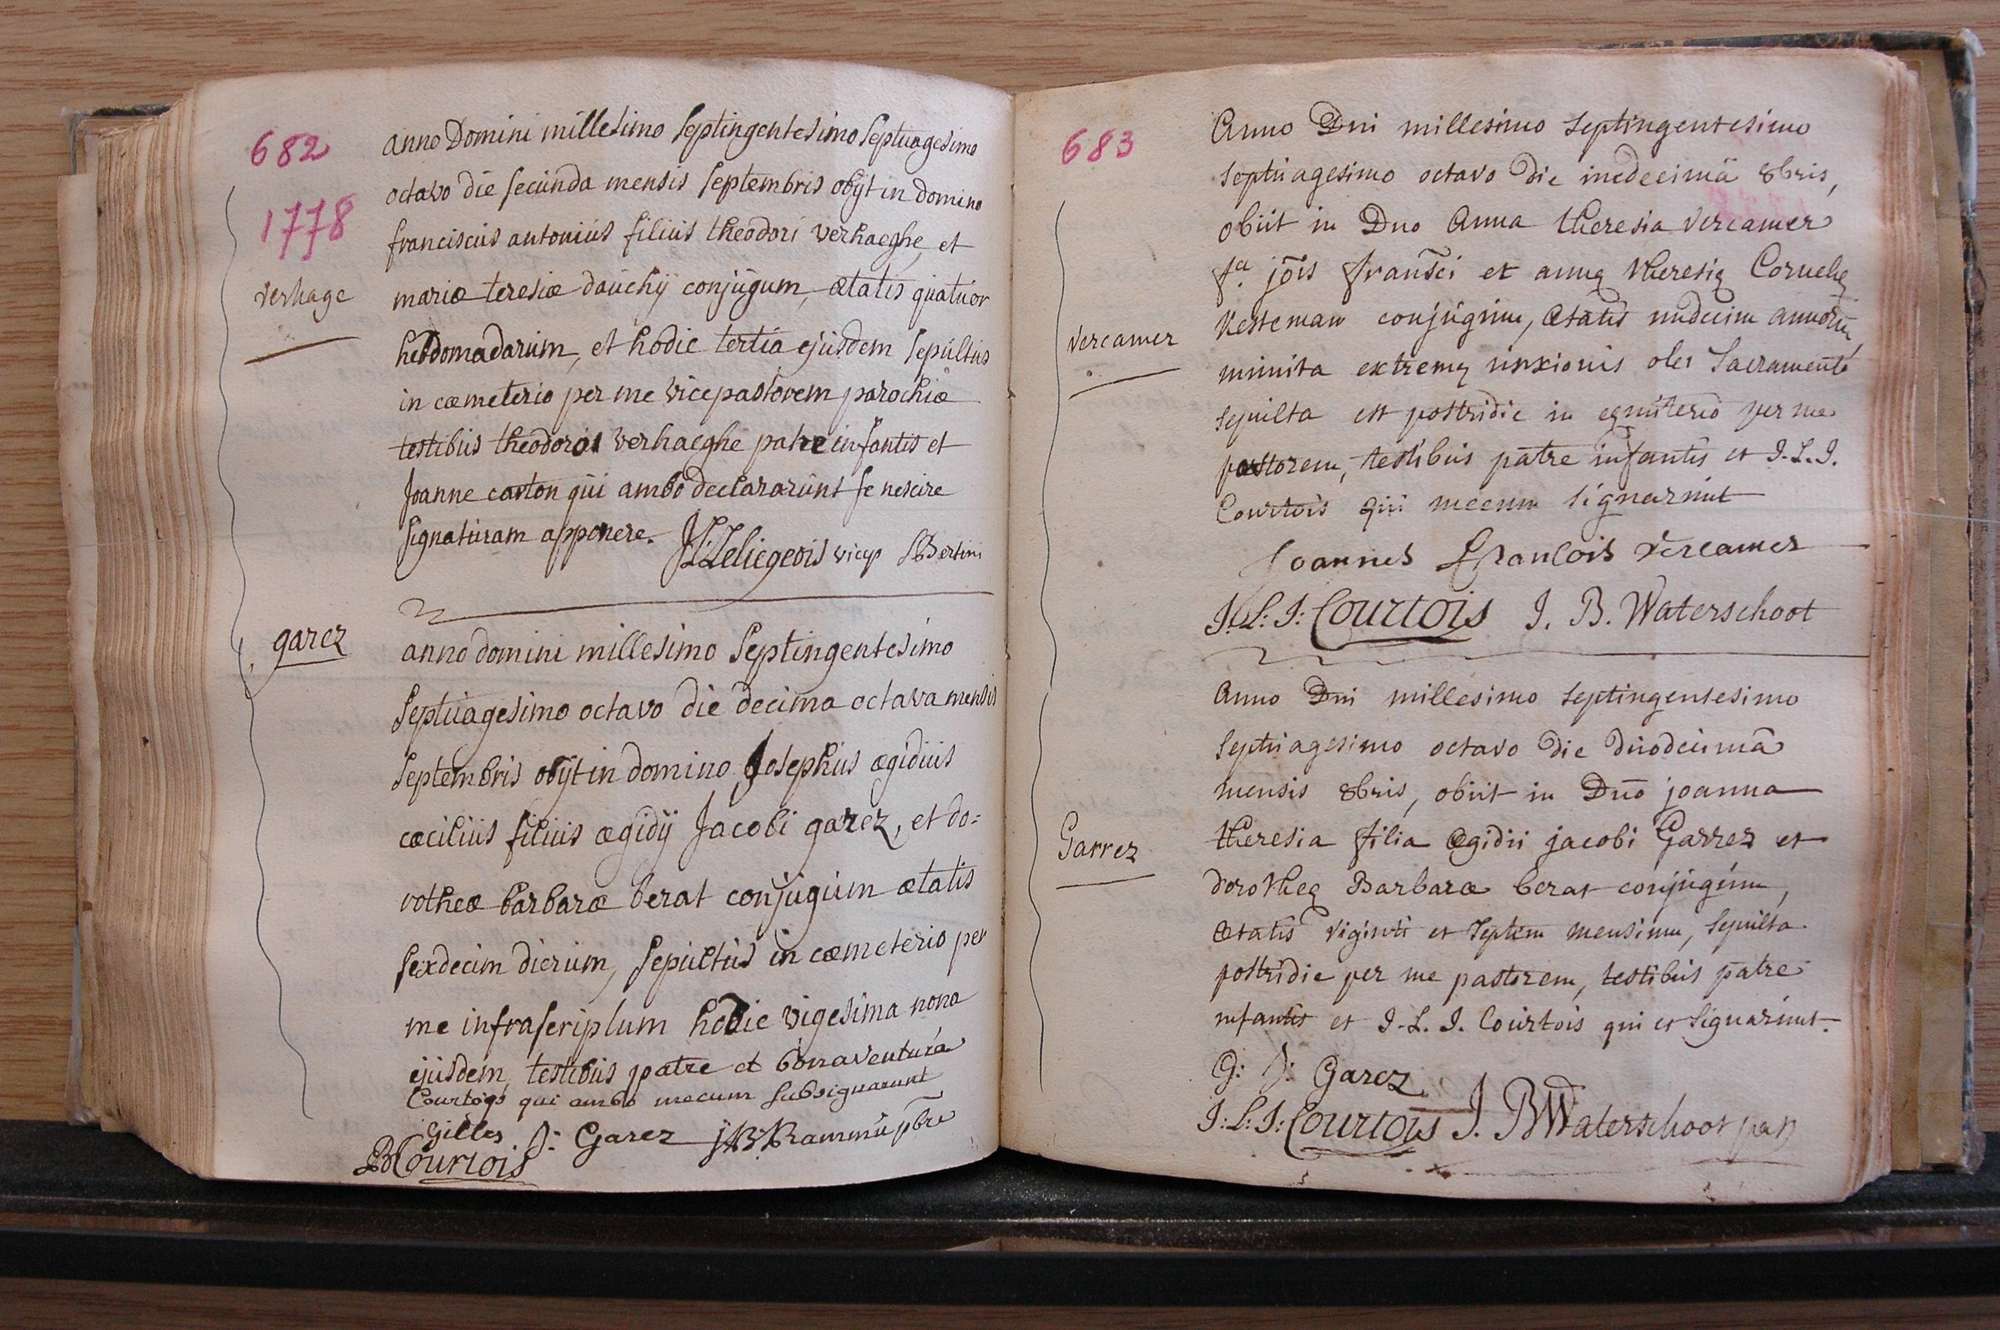 682
1778
anno Domini millesimo septingentesimo septuagesimo
octavo die secunda mensis septembris obijt in domino
franciscus antonius filius theodori verhaeghe et
verhage
mariæ teresiæ dauchij conjugum, ætatis quatuor
hebdomadarum, et hodie tertia ejusdem sepultus
in cæmeterio per me vicepastorem parochiæ
testibus theodoro verhaeghe patre infantis et
Joanne carton qui ambo declararunt se nescire
signaturam apponere. Leliegeois vicep SBertini
garez
anno domini millesimo septingentesimo
septuagesimo octavo die decima octava mensis
septembris obijt in domino Josephus ægidius
cæcilius filius ægidij Jacobi garez, et do=
rotheæ barbaræ berat conjugum ætatis
sexdecim dierum, sepultus in cæmeterio per
me infrascriptum hodie vigesima nona
ejusdem, testibus patre et bonaventura
Courtois qui ambo mecum subsignarunt
Gilles J: Garez
BCourtois
683
Anno Dni millesimo septingentesimo
septuagesimo octavo die undecimâ 8bris,
obiit in Dno Anna theresia vercamer
fa. jois Fransci et annę theresię Cornelię
vercamer
Kesteman conjugum, ætatis undecim annorum,
munita extremę unxionis olei Sacramento
sepulta est postridie in cęmiterio per me
pastorem, testibus patre infantis et J.L.J.
Courtois qui mecum signarunt
Joannes Francois vercamer
J:L:J: Courtois J. B. Waterschoot
Anno Dni millesimo septingentesimo
septuagesimo octavo die duodecimâ
mensis 8bris, obiit in Dno joanna
Garrez
theresia filia Ægidii jacobi Garrez et
dorotheę Barbaræ berat conjugum,
ætatis viginti et septem mensium, sepulta
postridie per me pastorem, testibus patre
infantis et J.L.J. Courtois qui et signarunt.
G: J: Garez
J:L:J: Courtois J. B Waterschoot